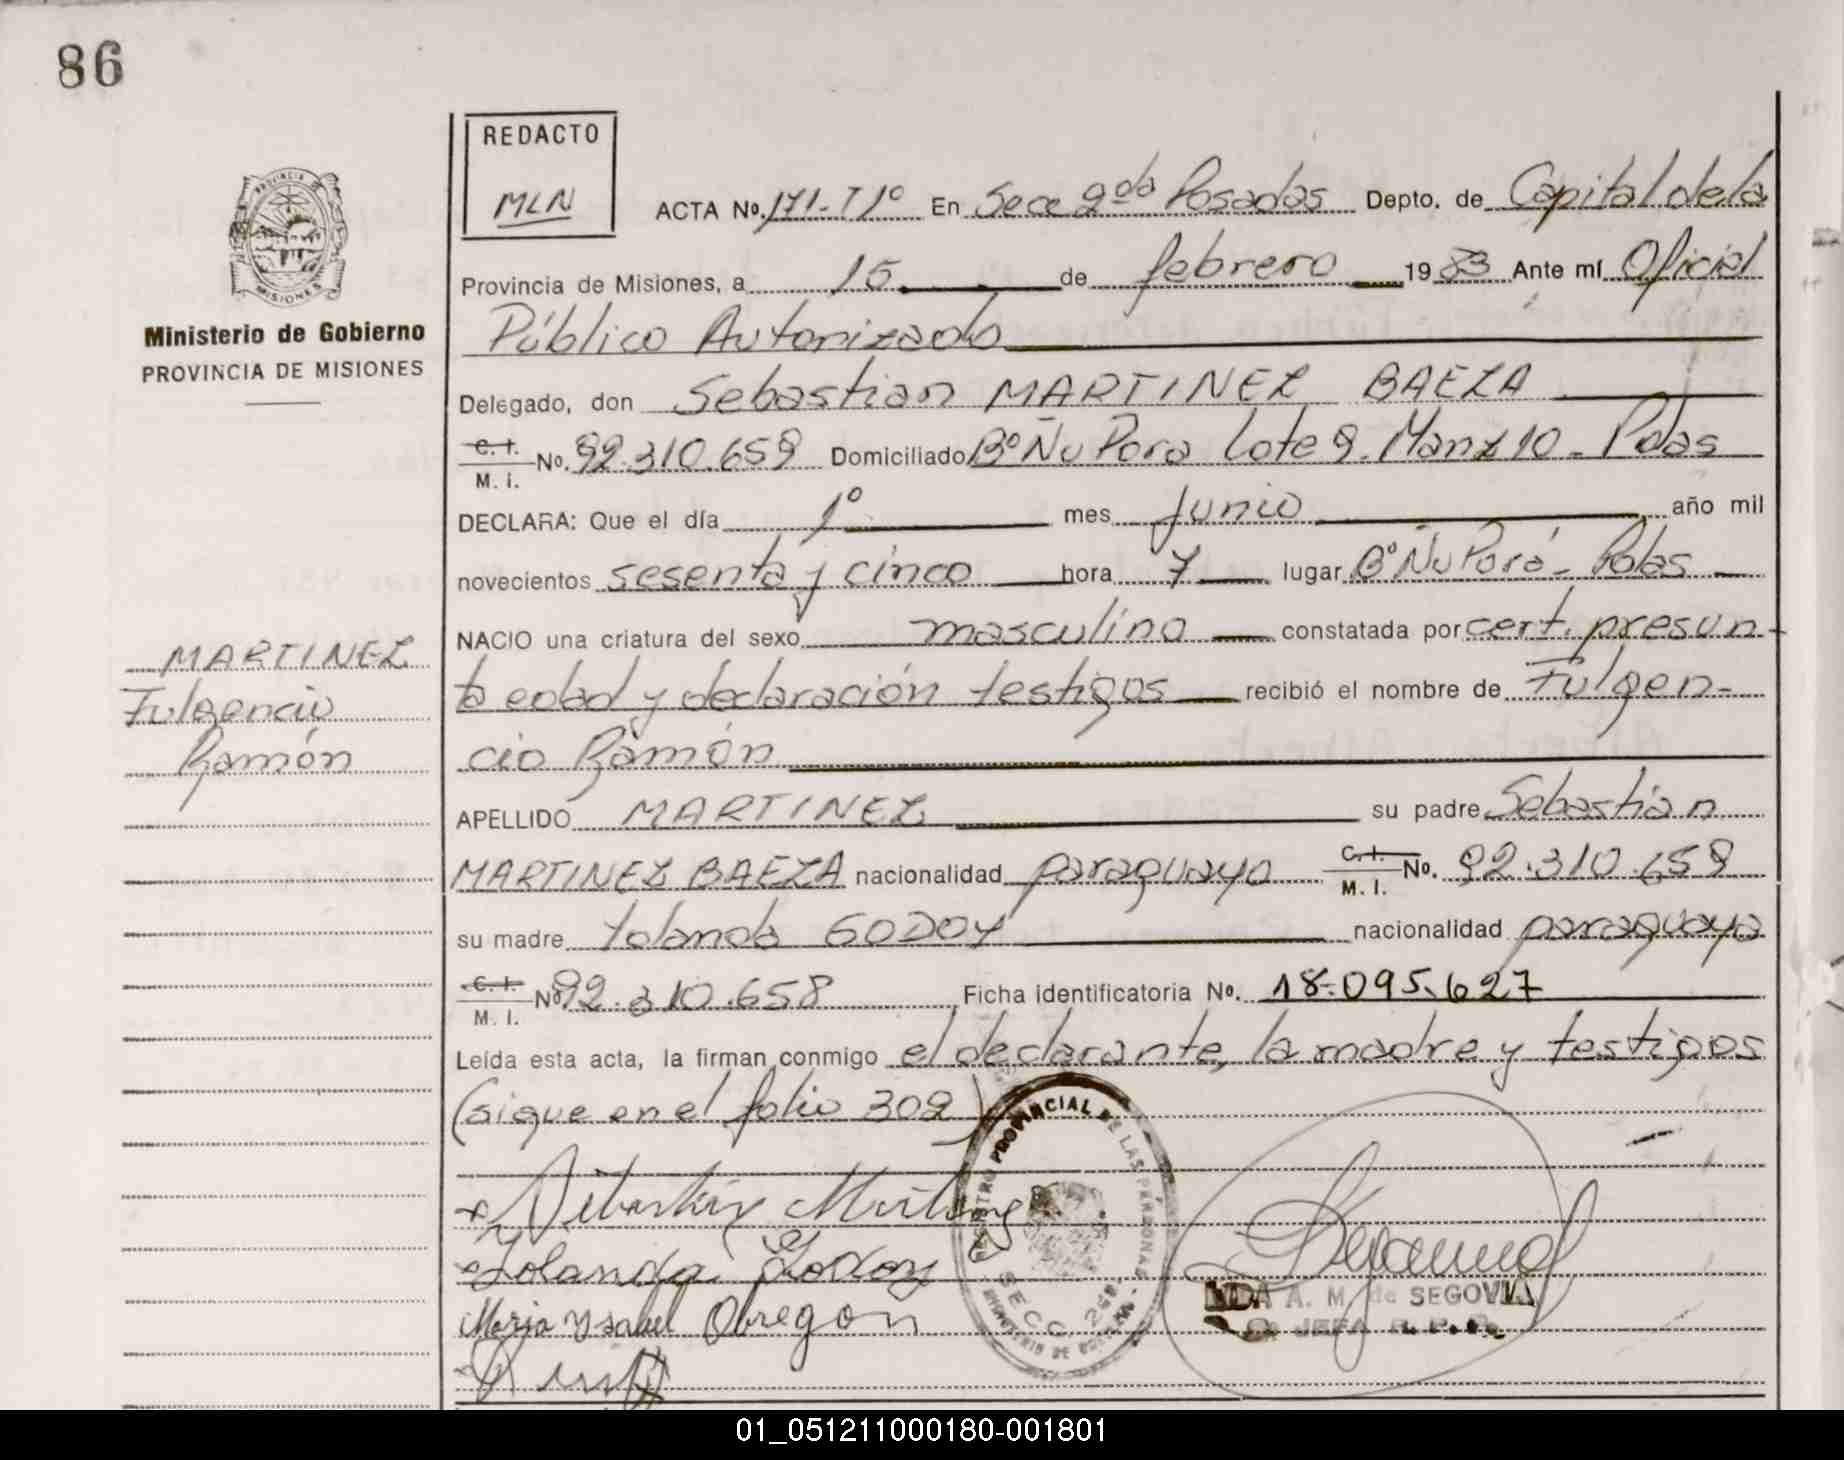 86
REDACTO
MLN
ACTA No. 171-T1º En Secc 2da Posadas Depto. de Capital de la
PROVINCIA DE
MISIONES
Provincia de Misiones, a 15 de febrero 1983 Ante mí Oficial
Ministerio de Gobierno
PROVINCIA DE MISIONES
Público Autorizado
Delegado, don Sebastian MARTINEZ BAEZA
C. I. M. I. No. 92.310.659 Domiciliado Bº Ñu Pora Lote 9. Manz 10 - Pdas
DECLARA: Que el día 1º mes junio año mil
novecientos sesenta y cinco hora 7 lugar Bº Ñu Porá - Pdas
NACIO una criatura del sexo masculino constatada por cert. presun-
MARTINEZ
Fulgencio
Ramón
ta edad y declaración testigos recibió el nombre de Fulgen-
cio Ramón
APELLIDO MARTINEZ su padre Sebastian
MARTINEZ BAEZA nacionalidad paraguayo C. I. M. I. No. 92.310.659
su madre Yolanda GODOY nacionalidad paraguaya
C. I. M. I. Nº 92.310.658 Ficha identificatoria No. 18.095.627
Leída esta acta, la firman conmigo el declarante, la madre y testigos
(sigue en el folio 302)
REGISTRO PROVINCIAL DE LAS PERSONAS
SECC. 2da
MINISTERIO DE GOBIERNO
Yolanda Godoy
Maria Ysabel Obregon
LIDA A. M. de SEGOVIA
JEFA R. P. P.
01_051211000180-001801